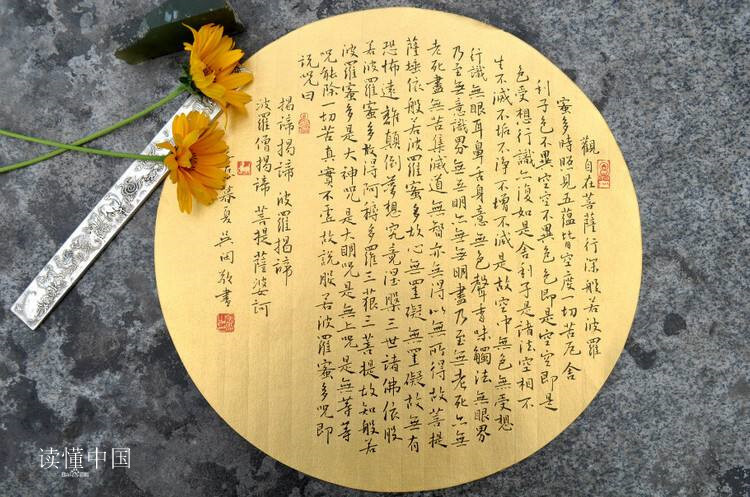 觀自在菩薩行深般若波羅
蜜多時照見五蘊皆空度一切苦厄舍
利子色不異空空不異色色即是空空即是
色受想行識亦復如是舍利子是諸法空相不
生不滅不垢不淨不增不減是故空中無色無受想
行識無眼耳鼻舌身意無色聲香味觸法無眼界
乃至無意識界無無明亦無無明盡乃至無老死亦無
老死盡無苦集滅道無智亦無得以無所得故菩提
薩埵依般若波羅蜜多故心無罣礙無罣礙故無有
恐怖遠離顛倒夢想究竟涅槃三世諸佛依般
若波羅蜜多故得阿耨多羅三藐三菩提故知般若
波羅蜜多是大神咒是大明咒是無上咒是無等等
咒能除一切苦真實不虛故說般若波羅蜜多咒即
說咒曰
揭諦揭諦 波羅揭諦
波羅僧揭諦 菩提薩婆訶
暮夏吳敬書
读懂中国